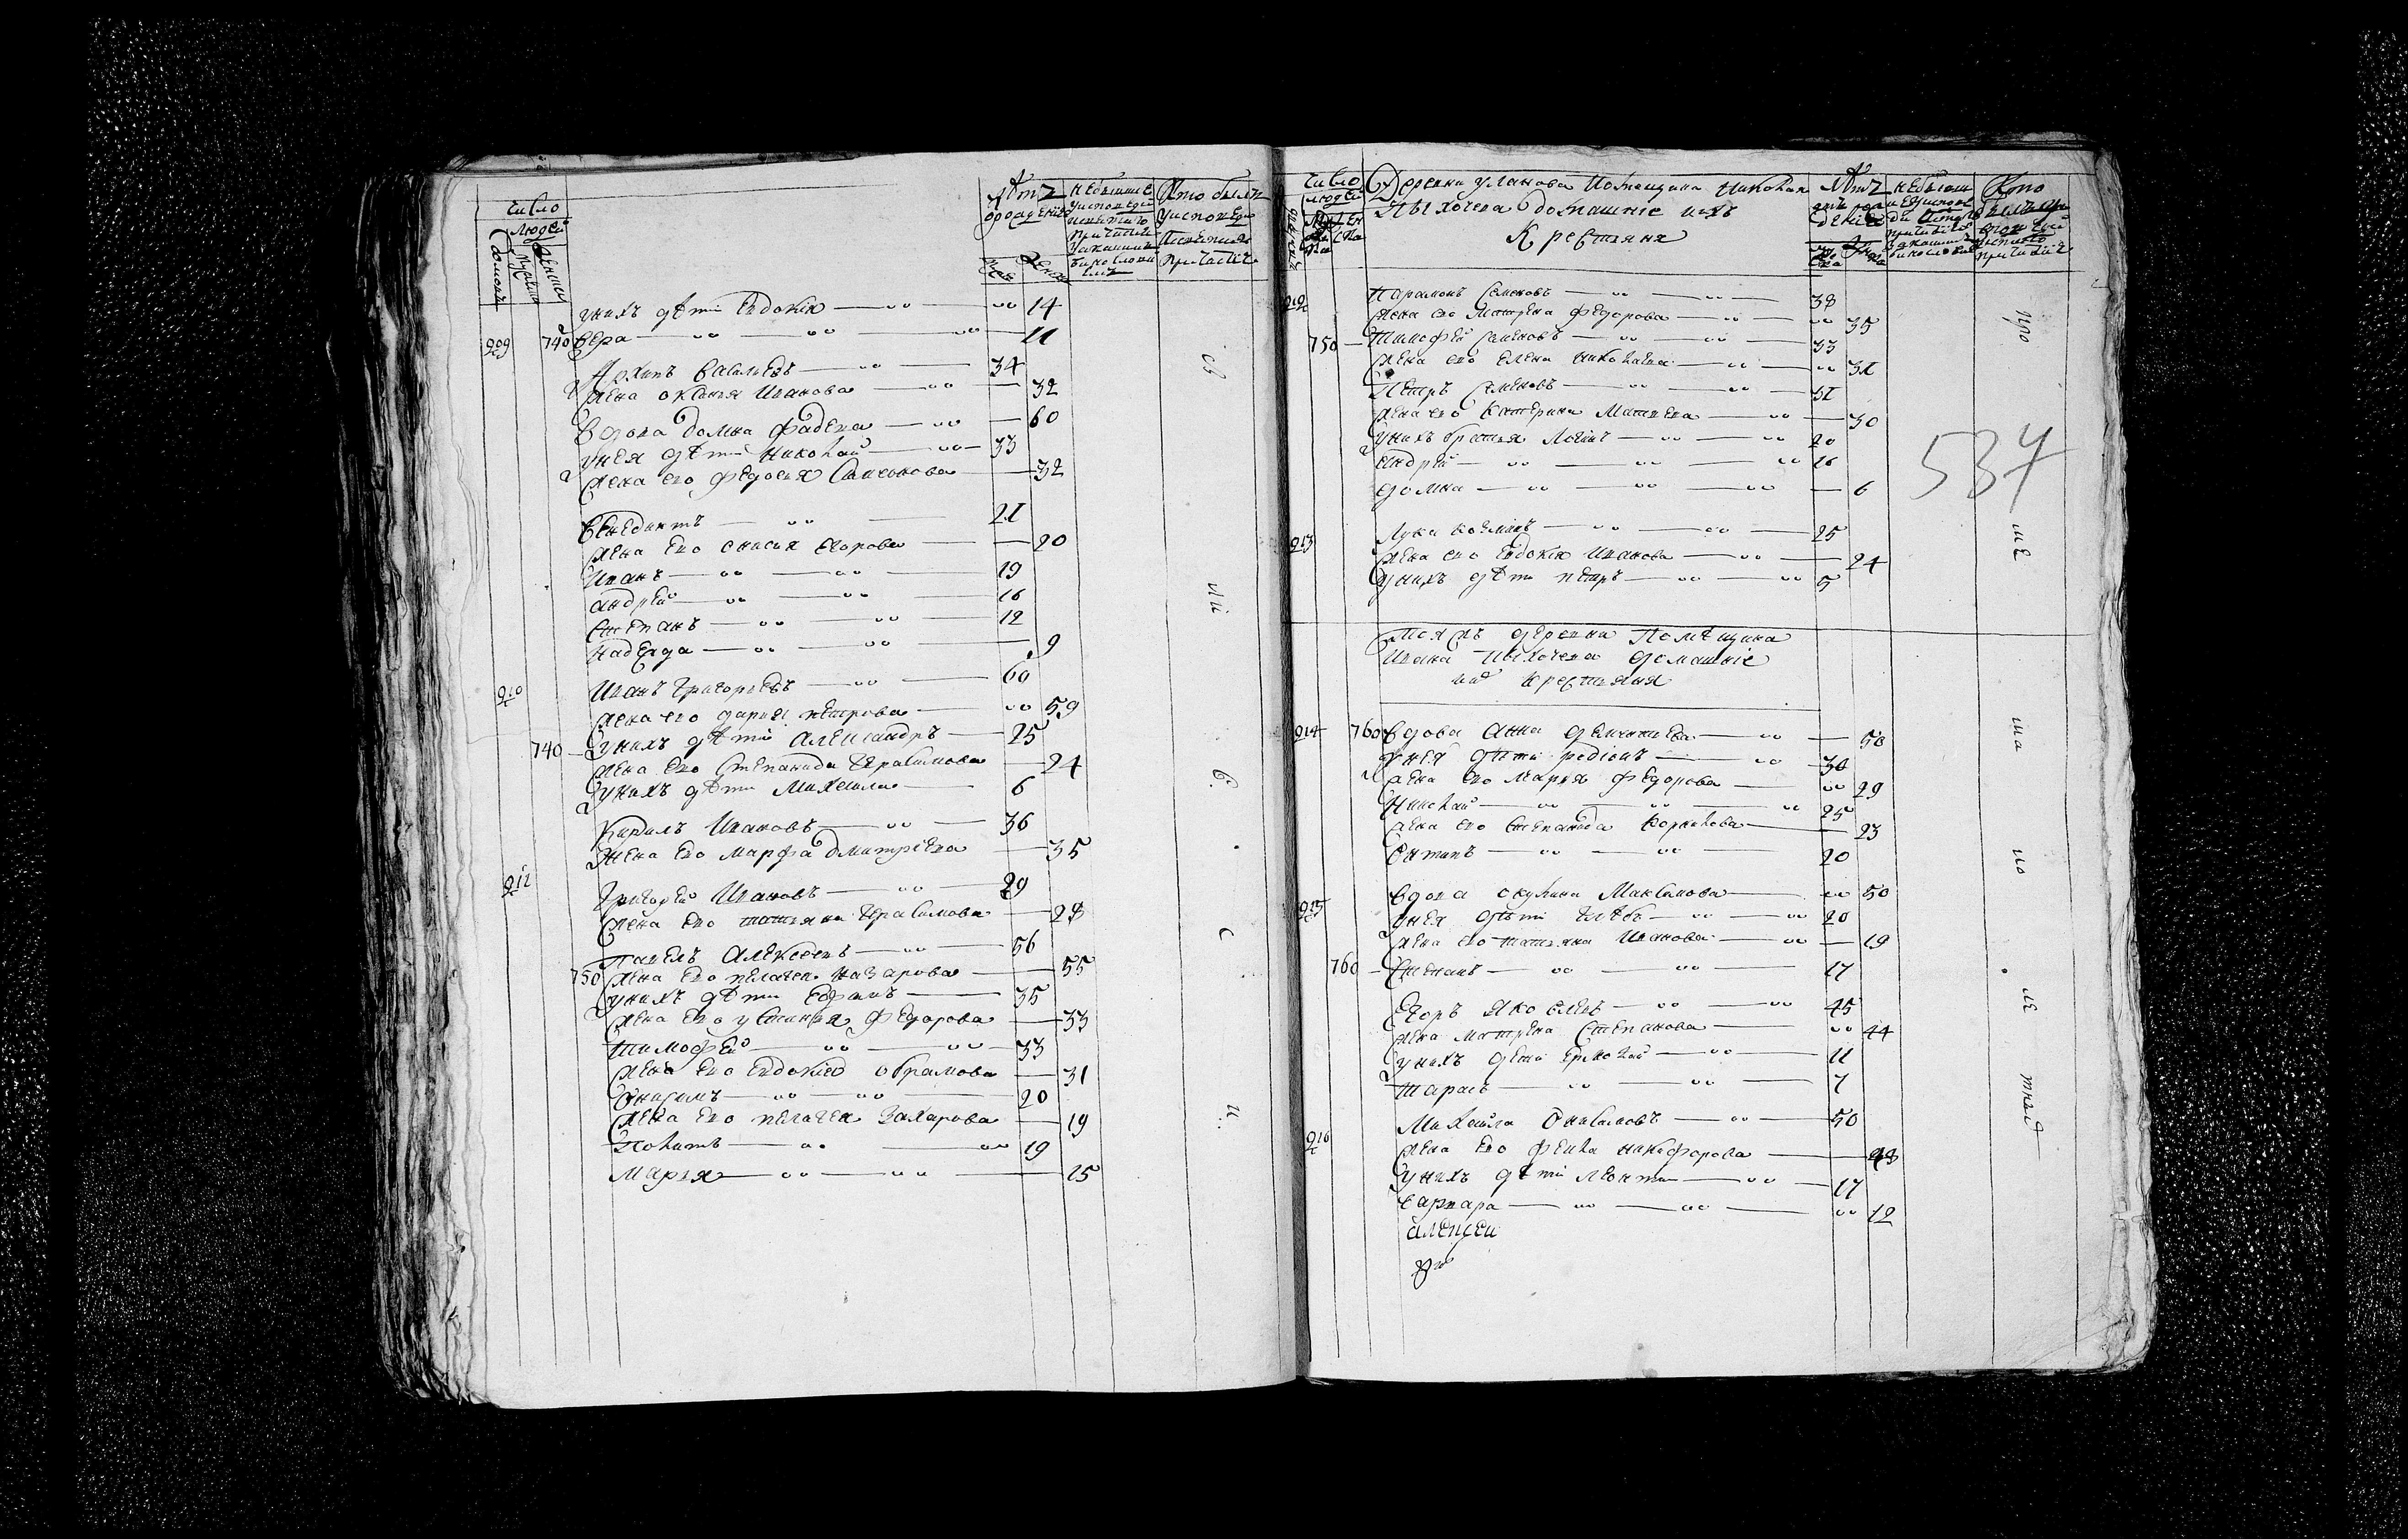 Число
людей
Домовъ
Мужска
Женска
Лѣтъ
от рожденія
муж
женск
Кто былъ
у исповеди
причастія
у нихъ дѣти Евдокія 14
740 Вера 11
209
Архипъ Васильевъ 34
жена Оксинья Иванова 32
Вдова Домна Фадеева 60
у нея дѣти Николай 33
жена его Федосья Самсонова 32
Венедиктъ 21
жена его Онисья Егорова 20
Иванъ 19
Андрей 16
Степанъ 12
Надежда 9
210 Иванъ Григорьевъ 60
жена его Дарья Петрова 59
740 у нихъ дѣти Александръ 25
жена его Степанида Герасимова 24
у нихъ дѣти Михаила 6
Кирилъ Ивановъ 36
Жена его Марфа Дмитріева 35
211
Григорей Ивановъ 29
жена его Татьяна Герасимова 28
Павелъ Алексеевъ 56
750 жена его Пелагея Назарова 55
у нихъ дѣти Ефимъ 35
жена его Устинья Федорова 33
Тимофей 33
жена его Евдокия Обрамова 31
Онисимъ 20
жена его Пелагея Захарова 19
Поликтъ 19
Марья 15
Число
людей
Деревни Уланова Помещика Николая
Пыхочева домашніе ихъ
Крестьяня
Лѣтъ
Кто
212 Парамонъ Семеновъ 38
жена его Матрена Федорова 35
750 Тимофей Семеновъ 33
жена его Елена Николаева 31
Петръ Семеновъ 31
жена его Катерина Матвеева 30
у нихъ братья Логинъ 20
Андрей 16
Домна 6
537
213 Лука Козминъ 25
жена его Евдокія Иванова 24
у нихъ дѣти Петръ 5
Тоя жъ деревни Помѣщика
Ивана Пыхочева домашніе
ихъ крестьяня
214 760 Вдова Анна Дементьева 50
у нея дѣти Родіонъ 30
жена его Марья Федорова 29
Николай 25
жена его Степанида Корнилова 23
Онтипъ 20
215
Вдова Окулина Максимова 50
у нея дѣти Глѣбъ 20
жена его Татьяна Иванова 19
760 Степанъ 17
Егоръ Яковлевъ 45
жена Матрена Степанова 44
у нихъ дѣти Ермолай 11
Тарасъ 7
216
Михайла Онисимовъ 50
жена его Фекла Никифорова 48
у нихъ дѣти Леонтій 17
Варвара 12
Алексеи